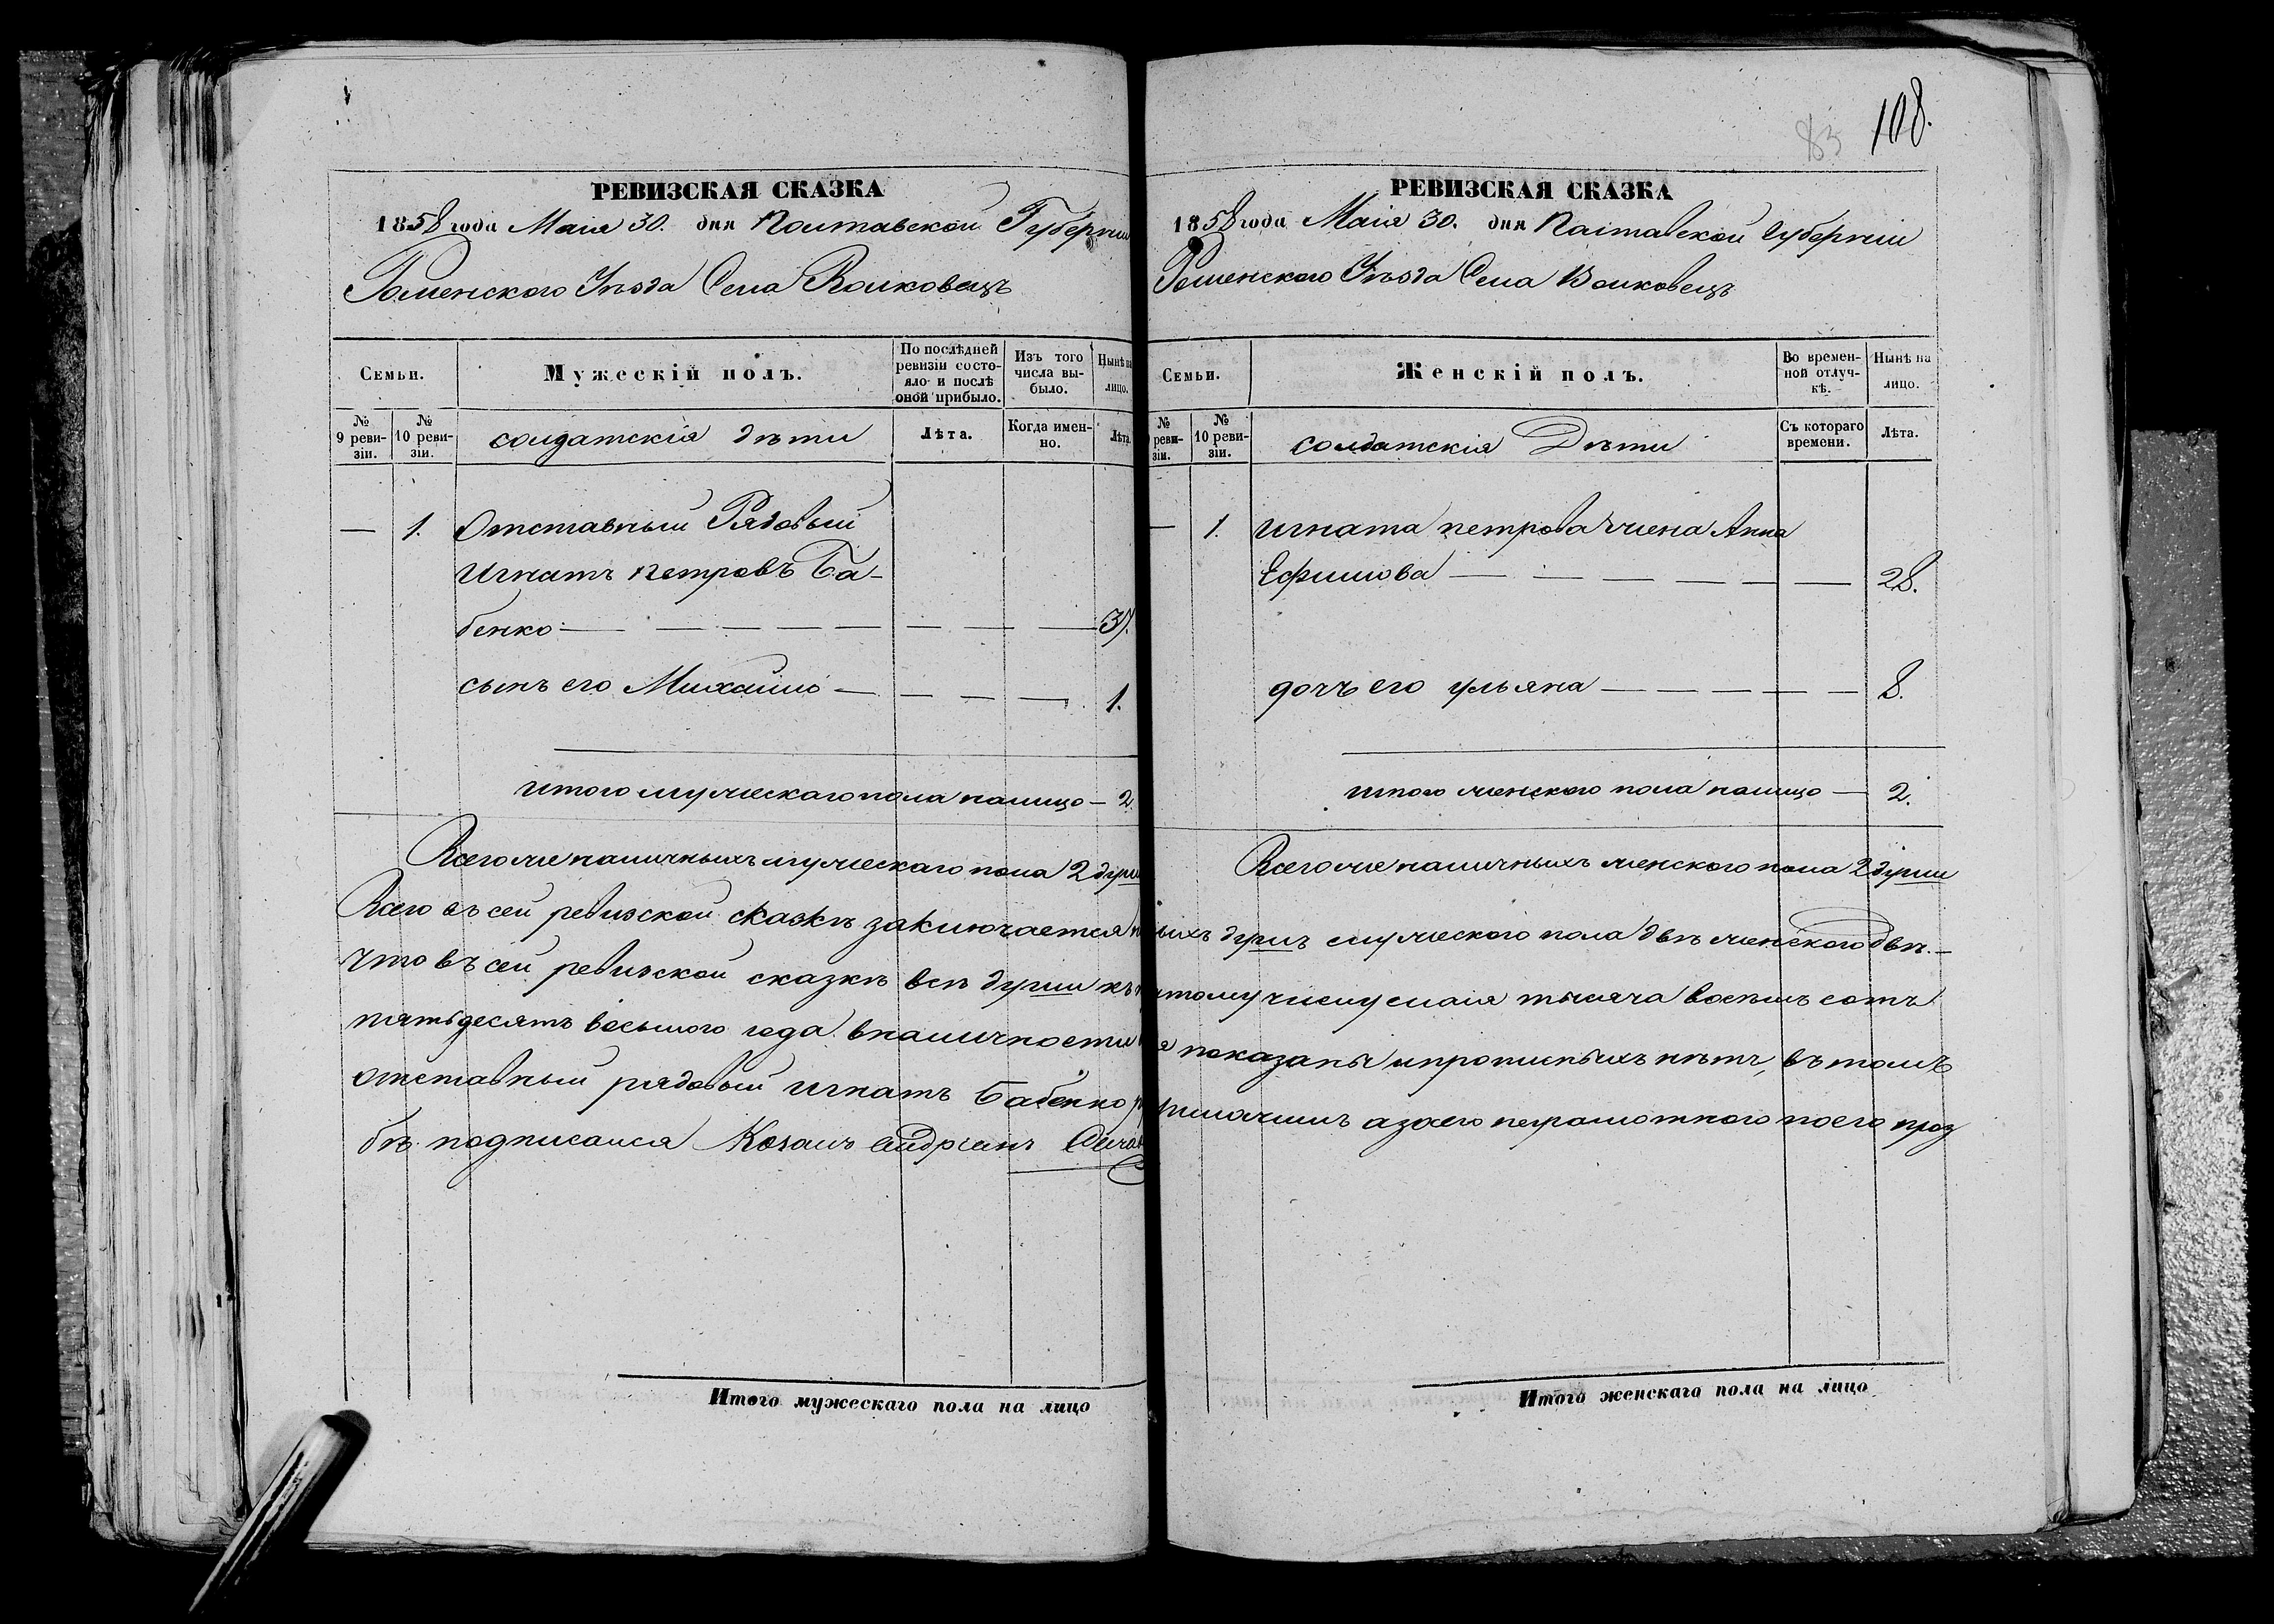 РЕВИЗСКАЯ СКАЗКА
1858 года Маія 30. дня Полтавской Губерніи
Роменского Уѣзда Села Волковецъ
Семьи.
Мужескій полъ.
По послѣдней ревизіи состояло и послѣ оной прибыло.
Изъ того числа выбыло.
Нынѣ на лицо.
№ 9 ревизіи.
№ 10 ревизіи.
солдатскія дѣти
Лѣта.
Когда именно.
Лѣта.
— 1. Отставный Рядовый
Игнатъ петровъ Ба-
бенко — — — — — — — 37.
сынъ его Михайло — — — — 1.
итого мужескаго пола налицо — 2.
Всего же наличныхъ мужескаго пола 2 души
108.
83
РЕВИЗСКАЯ СКАЗКА
1858 года Маія 30. дня Полтавской Губерніи
Роменского Уѣзда Села Волковецъ
Семьи.
Женскій полъ.
Во временной отлучкѣ.
Нынѣ на лицо.
№ ревизіи.
№ 10 ревизіи.
солдатскія Дѣти
Съ котораго времени.
Лѣта.
— 1. Игната петрова жена Анна
Ефимова — — — — — — 28.
дочь его ульяна — — — — — 8.
итого женского пола налицо — 2.
Всего же наличныхъ женского пола 2 души
Всего въ сей ревизской сказкѣ заключается душъ мужеского пола двѣ женского двѣ. —
Что въ сей ревизской сказкѣ всѣ души къ числу маія тысяча восемь сотъ
пятьдесятъ восьмого года вналичности показаны и прописныхъ нѣтъ, въ томъ
отставный рядовый игнатъ Бабенко а за его неграмотного по его проз
бѣ подписался Козакъ андріанъ
Итого мужескаго пола на лицо
Итого женскаго пола на лицо